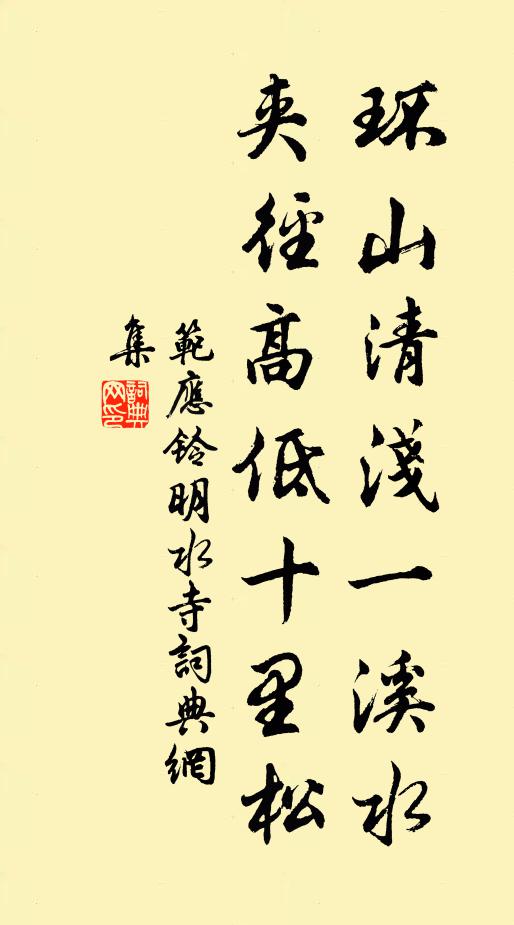 环山清淺一溪水
夾徑高低十里松
範應鈴明水寺詞典網
集
詞典網印